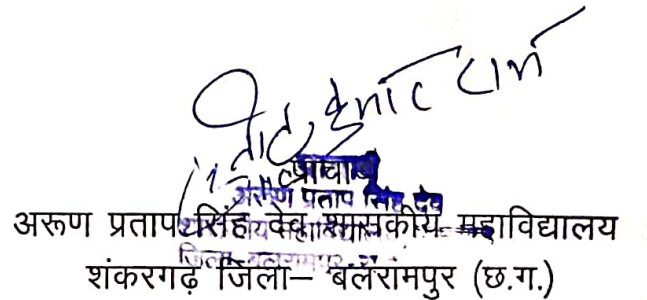 कुमार राम
प्राचार्य
अरूण प्रताप सिंह देव
अरूण प्रताप सिंह देव शासकीय महाविद्यालय
शंकरगढ़ जिला– बलरामपुर (छ.ग.)